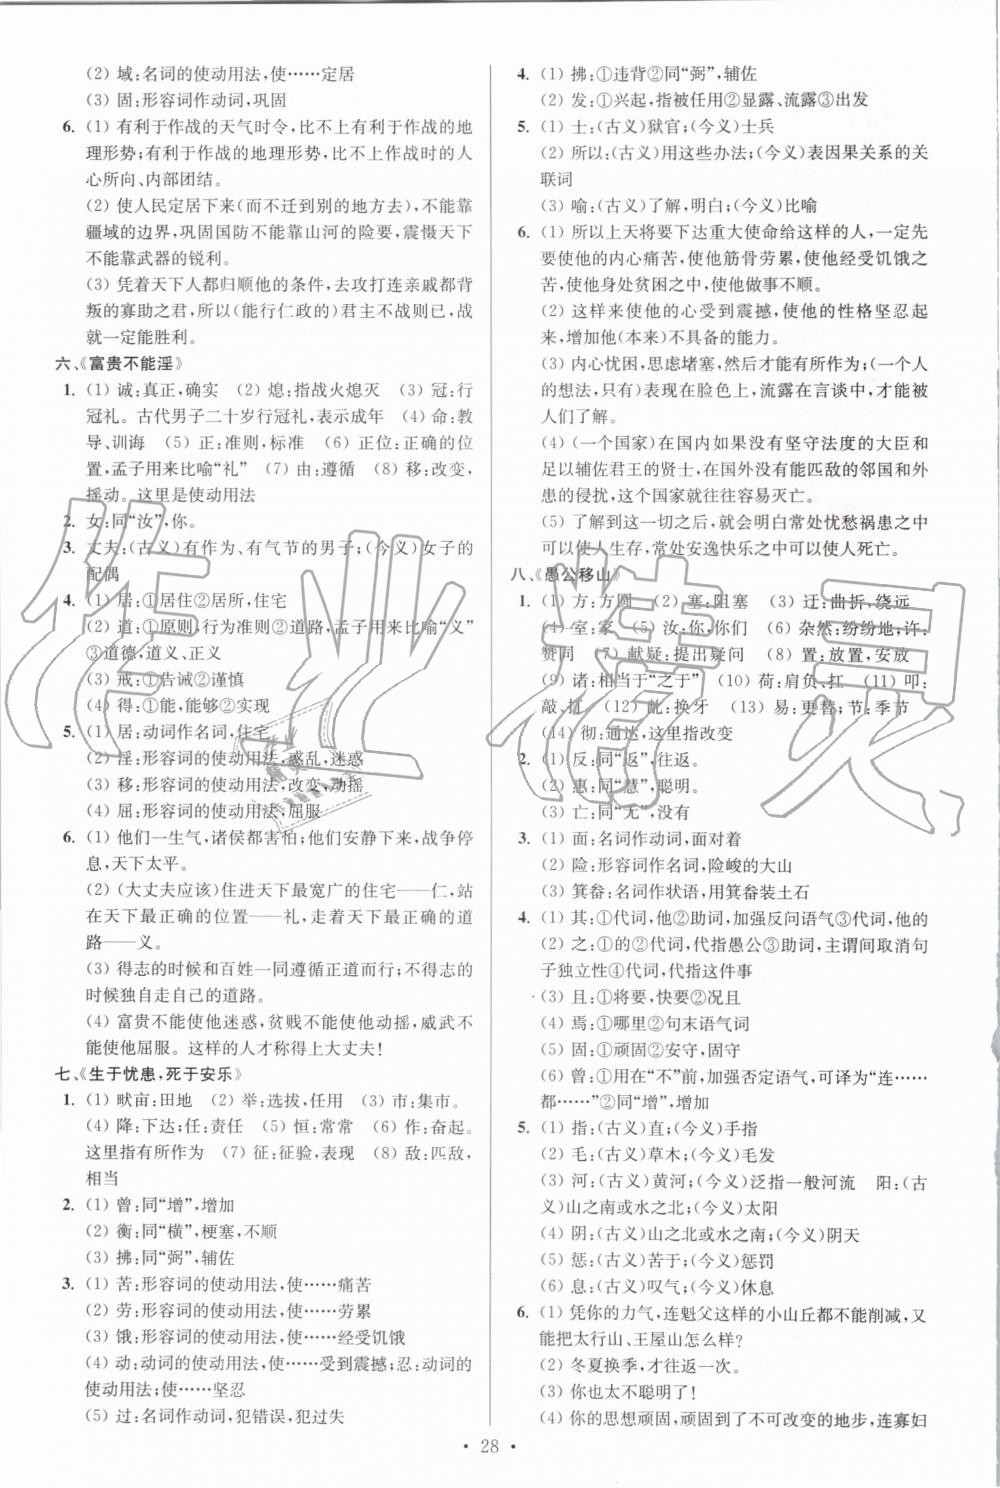 (2) 域:名词的使动用法,使……定居
(3) 固:形容词作动词,巩固
6. (1) 有利于作战的天气时令,比不上有利于作战的地
理形势;有利于作战的地理形势,比不上作战时的人
心所向、内部团结。
(2) 使人民定居下来(而不迁到别的地方去),不能靠
疆域的边界,巩固国防不能靠山河的险要,震慑天下
不能靠武器的锐利。
(3) 凭着天下人都归顺他的条件,去攻打连亲戚都背
叛的寡助之君,所以(能行仁政的)君主不战则已,战
就一定能胜利。
六、《富贵不能淫》
1. (1) 诚:真正,确实 (2) 熄:指战火熄灭 (3) 冠:行
冠礼。古代男子二十岁行冠礼,表示成年 (4) 命:教
导、训诲 (5) 正:准则,标准 (6) 正位:正确的位
置,孟子用来比喻“礼” (7) 由:遵循 (8) 移:改变,
摇动。这里是使动用法
2. 女:同“汝”,你。
3. 丈夫:(古义)有作为、有气节的男子;(今义)女子的
配偶
4. (1) 居:①居住②居所,住宅
(2) 道:①原则,行为准则②道路,孟子用来比喻“义”
③道德,道义、正义
(3) 戒:①告诫②谨慎
(4) 得:①能,能够②实现
5. (1) 居:动词作名词,住宅
(2) 淫:形容词的使动用法,惑乱,迷惑
(3) 移:形容词的使动用法,改变,动摇
(4) 屈:形容词的使动用法,屈服
6. (1) 他们一生气,诸侯都害怕;他们安静下来,战争停
息,天下太平。
(2) (大丈夫应该)住进天下最宽广的住宅——仁,站
在天下最正确的位置——礼,走着天下最正确的道
路——义。
(3) 得志的时候和百姓一同遵循正道而行;不得志的
时候独自走自己的道路。
(4) 富贵不能使他迷惑,贫贱不能使他动摇,威武不
能使他屈服。这样的人才称得上大丈夫!
七、《生于忧患,死于安乐》
1. (1) 畎亩:田地 (2) 举:选拔,任用 (3) 市:集市。
(4) 降:下达;任:责任 (5) 恒:常常 (6) 作:奋起。
这里指有所作为 (7) 征:征验,表现 (8) 敌:匹敌,
相当
2. (1) 曾:同“增”,增加
(2) 衡:同“横”,梗塞,不顺
(3) 拂:同“弼”,辅佐
3. (1) 苦:形容词的使动用法,使……痛苦
(2) 劳:形容词的使动用法,使……劳累
(3) 饿:形容词的使动用法,使……经受饥饿
(4) 动:动词的使动用法,使……受到震撼;忍:动词的
使动用法,使……坚忍
(5) 过:名词作动词,犯错误,犯过失
4. (1) 拂:①违背②同“弼”,辅佐
(2) 发:①兴起,指被任用②显露、流露③出发
5. (1) 士:(古义)狱官;(今义)士兵
(2) 所以:(古义)用这些办法;(今义)表因果关系的关
联词
(3) 喻:(古义)了解,明白;(今义)比喻
6. (1) 所以上天将要下达重大使命给这样的人,一定先
要使他的内心痛苦,使他筋骨劳累,使他经受饥饿之
苦,使他身处贫困之中,使他做事不顺。
(2) 这样来使他的心受到震撼,使他的性格坚忍起
来,增加他(本来)不具备的能力。
(3) 内心忧困,思虑堵塞,然后才能有所作为;(一个人
的想法,只有)表现在脸色上,流露在言谈中,才能被
人们了解。
(4) (一个国家)在国内如果没有坚守法度的大臣和
足以辅佐君王的贤士,在国外没有能匹敌的邻国和外
患的侵扰,这个国家就往往容易灭亡。
(5) 了解到这一切之后,就会明白常处忧愁祸患之中
可以使人生存,常处安逸快乐之中可以使人死亡。
八、《愚公移山》
1. (1) 方:方圆 (2) 塞:阻塞 (3) 迂:曲折,绕远
(4) 室:家 (5) 汝:你,你们 (6) 杂然:纷纷地;许:
赞同 (7) 献疑:提出疑问 (8) 置:放置,安放
(9) 诸:相当于“之于” (10) 荷:肩负、扛 (11) 叩:
敲,打 (12) 龀:换牙 (13) 易:更替;节:季节
(14) 彻:通达,这里指改变
2. (1) 反:同“返”,往返。
(2) 惠:同“慧”,聪明。
(3) 亡:同“无”,没有
3. (1) 面:名词作动词,面对着
(2) 险:形容词作名词,险峻的大山
(3) 箕畚:名词作状语,用箕畚装土石
4. (1) 其:①代词,他②助词,加强反问语气③代词,他的
(2) 之:①的②代词,代指愚公③助词,主谓间取消句
子独立性④代词,代指这件事
(3) 且:①将要,快要②况且
(4) 焉:①哪里②句末语气词
(5) 固:①顽固②安守,固守
(6) 曾:①用在“不”前,加强否定语气,可译为“连……
都……”②同“增”,增加
5. (1) 指:(古义)直;(今义)手指
(2) 毛:(古义)草木;(今义)毛发
(3) 河:(古义)黄河;(今义)泛指一般河流 阳:(古
义)山之南或水之北;(今义)太阳
(4) 阴:(古义)山之北或水之南;(今义)阴天
(5) 惩:(古义)苦于;(今义)惩罚
(6) 息:(古义)叹气;(今义)休息
6. (1) 凭你的力气,连魁父这样的小山丘都不能削减,又
能把太行山、王屋山怎么样?
(2) 冬夏换季,才往返一次。
(3) 你也太不聪明了!
(4) 你的思想顽固,顽固到了不可改变的地步,连寡妇
• 28 •
作业精灵